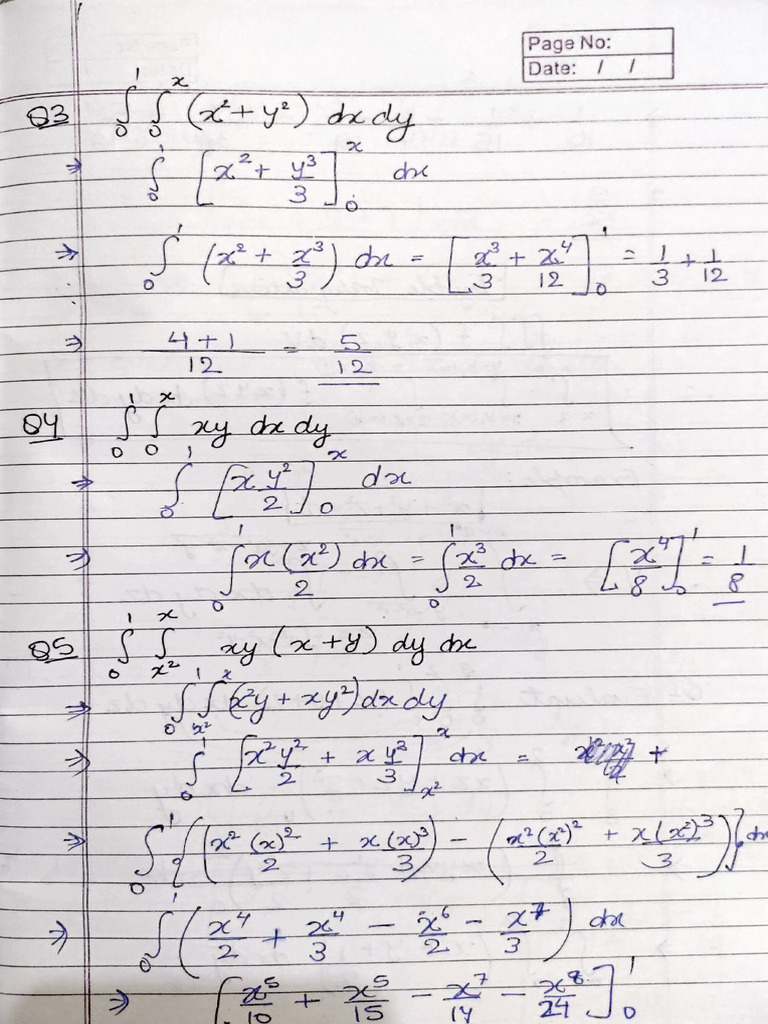 Page No:
Date: / /
Q3 ∫₀¹ ∫₀ˣ (x² + y²) dx dy
⇒ ∫₀¹ [x² + y³/3]₀ˣ dx
⇒ ∫₀¹ (x² + x³/3) dx = [x³/3 + x⁴/12]₀¹ = 1/3 + 1/12
⇒ (4+1)/12 = 5/12
Q4 ∫₀¹ ∫₀ˣ xy dx dy
⇒ ∫₀¹ [x y²/2]₀ˣ dx
⇒ ∫₀¹ x(x²)/2 dx = ∫₀¹ x³/2 dx = [x⁴/8]₀¹ = 1/8
Q5 ∫₀¹ ∫_{x²}^{x} xy (x+y) dy dx
⇒ ∫₀¹ ∫_{x²}^{x} (x²y + xy²) dx dy
⇒ ∫₀¹ [x² y²/2 + x y³/3]_{x²}^{x} dx = +
⇒ ∫₀¹ {(x²(x)²/2 + x(x)³/3) − (x²(x²)²/2 + x(x²)³/3)} dx
⇒ ∫₀¹ (x⁴/2 + x⁴/3 − x⁶/2 − x⁷/3) dx
⇒ [x⁵/10 + x⁵/15 − x⁷/14 − x⁸/24]₀¹